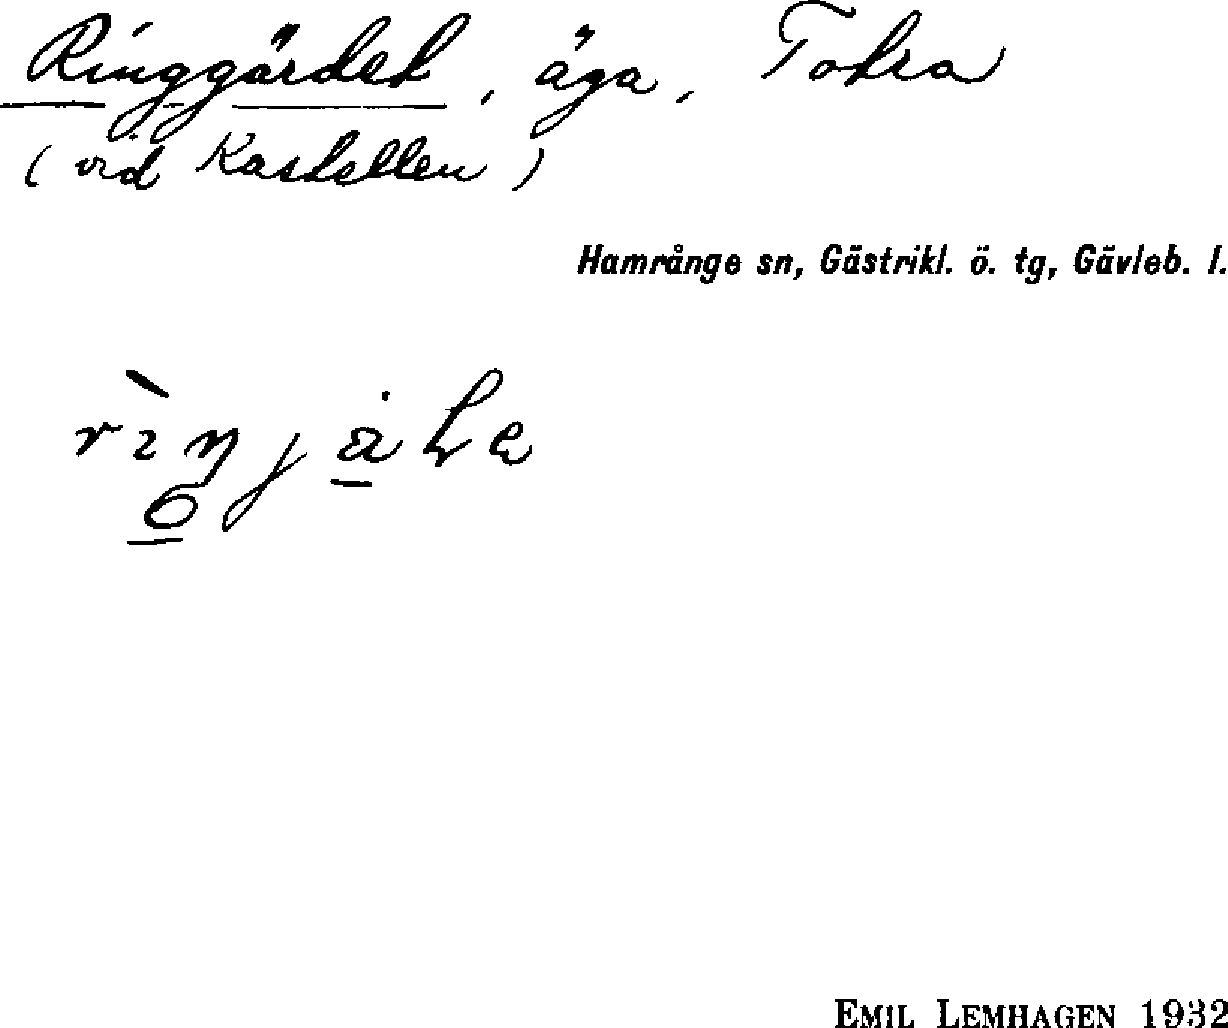 Ringgärdet, äga, Totra
(vid Kastellen)
Hamrånge sn, Gästrikl. ö. tg, Gävleb. l.
EMIL LEMHAGEN 1932